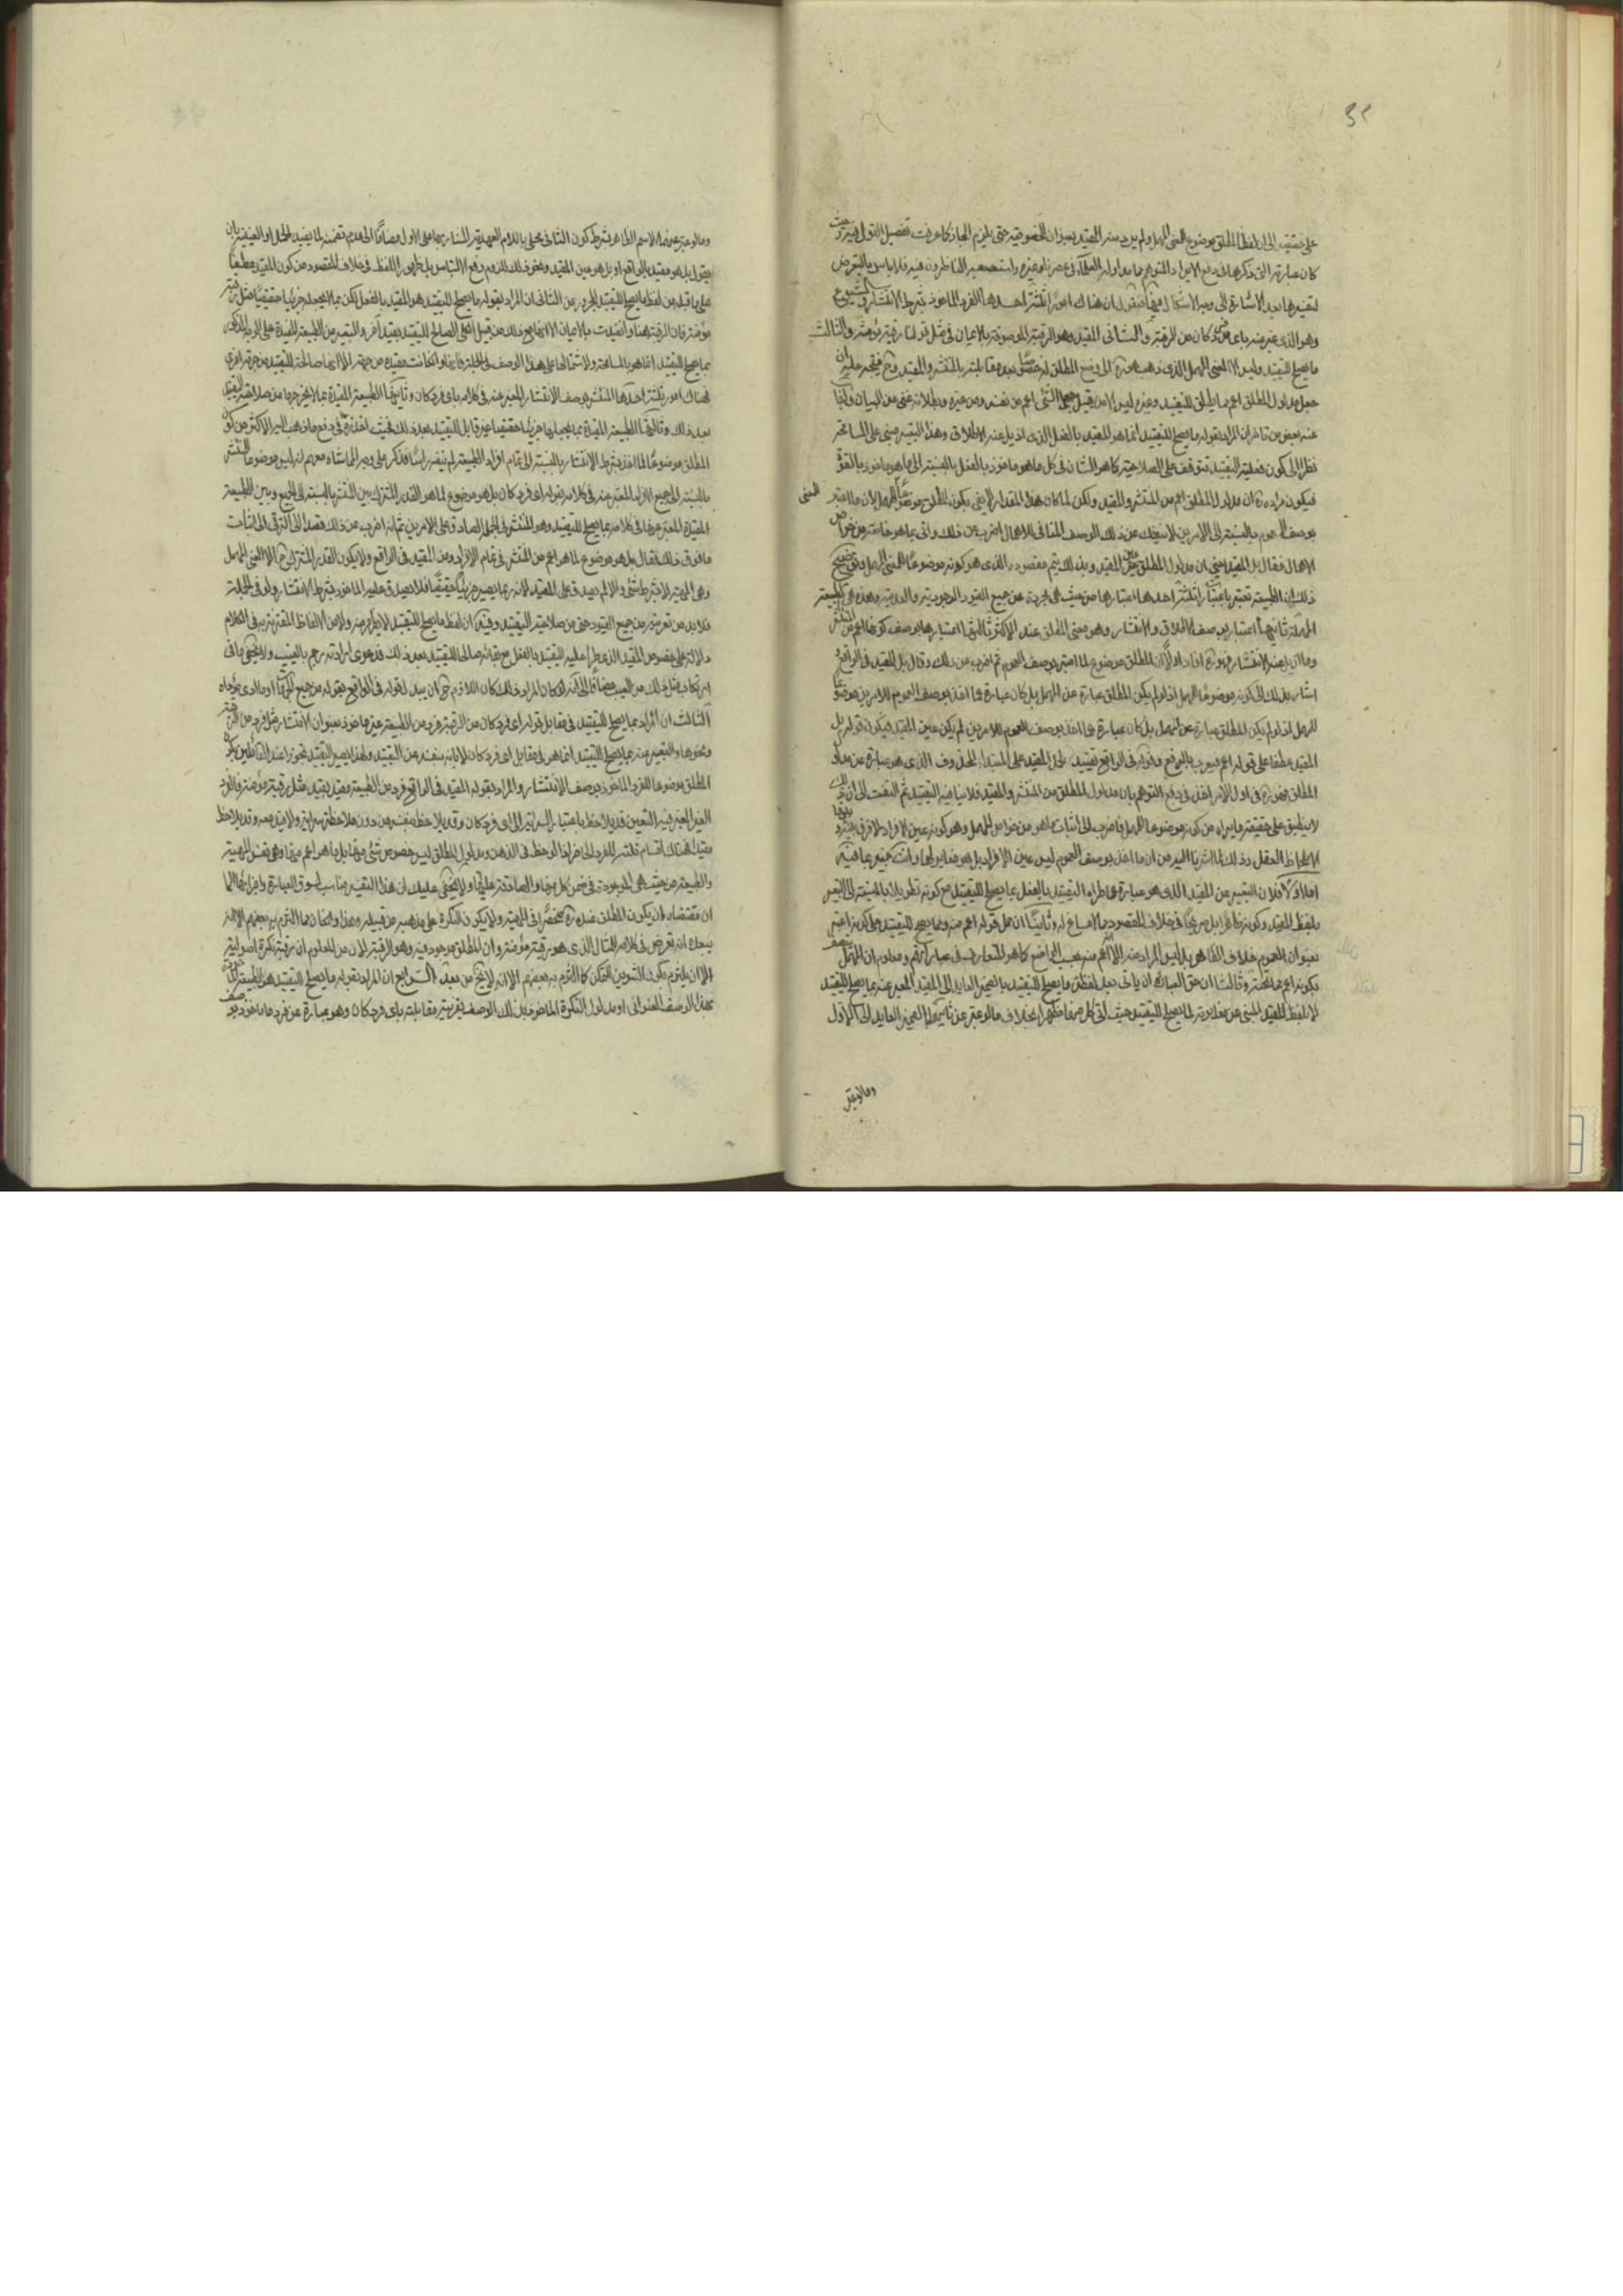 ٣٢
على حقيقته الى ان لفظ المطلق موضوع للمعنى المهمل ولم يرد منه المقيد بعنوان الخصوصية حتى يلزم المجاز كما عرفت تفصيل القول فيه وحيث
كان عبارته التي ذكرها في دفع الايراد المتوهم مما تداوله العلماء في عصرنا وغيره واستصعبه الناظرون فيه فلا باس بالتعرض
لتفسيرها بعد الاشارة الى وجه الاشكال فيها فنقول ان هناك امورا ثلثة احدها الفرد الماخوذ بشرط الانتشار والشيوع
وهو الذي عبر عنه باي فرد كان من الرقبة والثاني المقيد وهو الرقبة الموصوفة بالايمان في مثل قولنا رقبة مؤمنة والثالث
ما يصلح للتقييد وليس الا المعنى المهمل الذي ذهب هو الى وضع المطلق له بعد مقابلته بالمنتشر والمقيد وح فيتجه عليه ان
جعل مدلول المطلق اعم مما يصلح للتقييد وغيره ليس الا من قبيل جعل الشئ اعم من نفسه ومن غيره وبطلانه غنى عن البيان
عنه بعض من تاخر ان المراد بقوله ما يصلح للتقييد انما هو المقيد بالفعل الذي اذيل عنه الاطلاق وهذا التعبير مبني على المسامحة
نظرا الى كون فعلية التقييد تتوقف على الصلاحية كما هو الشان في كل ما هو ماخوذ بالفعل بالنسبة الى ما هو ماخوذ بالقوة
فيكون مراده ان مدلول المطلق اعم من المنتشر والمقيد ولكن لما كان هذا المقدار لا يفي بكون المطلق موضوعا للمهمل لان ما اعتبر
المعنى
بوصف العموم بالنسبة الى الامرين لا ينفك عن ذلك الوصف المنافي للاهمال اضرب عن ذلك واتى بما هو خاصة من خواص
الاهمال فقال بل المقيد يعني ان مدلول المطلق عين المقيد وبذلك يتم مقصوده الذي هو كونه موضوعا للمعنى المهمل وتوضيح
ذلك ان الطبيعة تعتبر باعتبارات ثلثة احدها اعتبارها من حيث هي مجردة عن جميع القيود الوجودية والعدمية وهذه هي الطبيعة
المهملة ثانيها اعتبار بوصف الاطلاق والانتشار وهو معنى المطلق عند الاكثر ثالثها اعتبارها بوصف كونها اعم من المنتشر
وما ازيل عنه الانتشار افاد اولا ان المطلق موضوع لما اعتبر بوصف العموم ثم اضرب عن ذلك وقال بل المقيد في الواقع
اشار بذلك الى كونه موضوعا للمهمل اذ لو لم يكن المطلق عبارة عن المهمل بل كان عبارة عما اخذ بوصف العموم للامرين موضوعا
للمهمل اذ لو لم يكن المطلق عبارة عن المهمل بل كان عبارة عما اخذ بوصف العموم للامرين لم يكن عين المقيد فيكون قوله بل
المقيد عطفا على قوله اعم فيعرب بالرفع وقوله في الواقع تقييد لحمل المقيد على المبتدا المحذوف الذي هو عبارة عن مدلول
المطلق في اول الامر اخذ في دفع التوهم بان مدلول المطلق من المنتشر والمقيد فلا ينافيه التقييد ثم التفت الى ان ذلك
لا ينطبق على حقيقة مرامه من كونه موضوعا للمهمل فاضرب الى اثبات ما هو من خواص المهمل وهو كونه عين الافراد لا فرق بينهما
الا بلحاظ العقل وذلك لما اشرنا اليه من ان ما اخذ بوصف العموم ليس عين الافراد بل هو مغاير لها وانت خبير بما فيه
اما اولا فلان التعبير عن المقيد الذي هو عبارة عما طراه التقييد بالفعل بما يصلح للتقييد مع كونه تطويلا بالنسبة الى التعبير
بلفظ المقيد وكونه ظاهرا بل صريحا في خلاف المقصود مما لا مساغ له وثانيا ان حمل قوله اعم منه ومما يصلح للتقييد على كونه
بعنوان العموم خلاف الظاهر بل ليس المراد منه الا الاعم منه بحسب الواضع كما هو المتعارف في عباراتهم ومعلوم ان المهمل
بكونه اعم مما تحته وثالثا ان حق العبارة ان ياتي بعد لفظة ما يصلح للتقييد بالضمير العايد الى المقيد المعبر عنه بما يصلح للتقييد
لا بلفظ المقيد المنبئ عن مغايرته لما يصلح للتقييد حيث اتى كل منهما مظهرا بخلاف ما لو عبر عن ثانيهما بالضمير العايد الى الاول
وما لو عبر
وما لو عبر عنه بالاسم الظاهر بشرط كون الثاني محلى باللام العهدية المشار بها الى الاول مضافا الى عدم تضمنه لما يفيد الحمل او العينية بان
يقول بل هو مقيد بالواقع او بل هو عين المقيد ونحو ذلك للزوم وقوع الالتباس بل ظهور اللفظ في خلاف المقصود من كون المقيد عطفا
على ما قبله من لفظ ما يصلح للتقييد المجرور عن الثاني ان المراد بقوله ما يصلح للتقييد هو المقيد بالفعل لكن بما لا يجعله جزئيا حقيقيا مثل رقبة
مؤمنة فان الرقبة هنا وان قيدت بالايمان الا انها مع ذلك من قبيل الكلي الصالح للتقييد بقيد آخر والتعبير عن الطبيعة المقيدة على الوجه المذكور
بما يصلح للتقييد انما هو بالمسامحة ولاشتمالها على هذا الوصف في الجملة فانها وان كانت مقيدة من جهة الا انها صالحة للتقييد من جهة اخرى
فهناك امور ثلثة احدها المنتشر بوصف الانتشار المعبر عنه في كلامه باي فرد كان وثانيها الطبيعة المقيدة بما لا يخرجها من صلاحية التقييد
بعد ذلك وثالثها الطبيعة المقيدة بما يجعلها جزئيا حقيقيا غير قابل للتقييد بعد ذلك فحيث اخذ في دفع ما ذهب اليه الاكثر من كون
المطلق موضوعا لما اخذ بشرط الانتشار بالنسبة الى تمام افراد الطبيعة لم ينفه راسا فذكر على وجه المماشاة معهم انه ليس موضوعا للمنتشر
بالنسبة الى جميع الافراد المعبر عنه في كلامه بقوله اي فرد كان بل هو موضوع لما هو القدر المشترك بين المنتشر بالنسبة الى الجميع وبين الطبيعة
المقيدة المعبر عنها في كلامه بما يصلح للتقييد وهو المنتشر في الجملة الصادق على الامرين ثم انه اضرب عن ذلك قصدا الى الترقي الى اثبات
ما فوق ذلك فقال بل هو موضوع لما هو اعم من المنتشر في تمام الافراد ومن المقيد في الواقع ولا يكون القدر المشترك ح الا المعنى المهمل
وهي المهية لا بشرط شئ والا لم يصدق على المقيد لانه ربما يصير جزئيا حقيقيا فلا يصدق عليه الماخوذ بشرط الانتشار ولو في الجملة
فلا بد من تعريته من جميع القيود حتى من صلاحية التقييد وفيه ان لفظ ما يصلح للتقييد لا يظهر منه ولا من الالفاظ المقترنة به في الكلام
دلالة على خصوص المقيد الذي طرا عليه التقييد بالفعل مع بقائه صالحا للتقييد بعد ذلك فدعوى ارادته رجم بالغيب ولا يخفى ما في
ارتكاب مثل ذلك من العيب مضافا الى انه لو كان المراد ذلك كان اللازم ح ان يبدل قوله في الواقع بقوله من جميع الجهات او ما ادى مؤداه
الثالث ان المراد بما يصلح للتقييد في مقابل قوله اي فرد كان من الرقبة فرد من الطبيعة غير ماخوذ بعنوان الانتشار مثل فرد من الرقبة
ونحوها والتعبير عنه بما يصلح للتقييد انما هو في مقابل اي فرد كان لابائه بنفسه عن التقييد ولهذا يصير التقييد تجوزا عند القائلين بكون
المطلق موضوعا للفرد الماخوذ بوصف الانتشار والمراد بقوله المقيد في الواقع فرد من الطبيعة مقيد بقيد مثل رقبة مؤمنة والفرد
الغير المعتبر فيه التعين قد يلاحظ باعتبار السراية الى اي فرد كان وقد يلاحظ بنفسه من دون ملاحظة سراية ولا قيد معه وقد يلاحظ
مقيدا فهناك اقسام ثلثة للفرد الملحوظ في الذهن ومدلول المطلق ليس خصوص شئ منها بل ما هو اعم منها وهي نفس المهية
والطبيعة من حيث هي الموجودة في ضمن كل منها والصادقة عليها ولا يخفى عليك ان هذا التفسير مناسب لسوق العبارة
ان مقتضاه ان يكون المطلق عنده منحصرا في المهية ولا يكون النكرة على مذهبه من قبيله وهذا وان كان مما التزم به بعضهم الا انه
يبعده انه تعرض في كلامه للمثال الذي هو رقبة مؤمنة وان المطلق موجود فيه وهو الرقبة لان من المعلوم ان رقبة نكرة اصولية
الا ان يلتزم بكون التنوين للتمكن كما التزم به بعضهم الا انه لا يخ من بعد الرابع ان المراد بقوله ما يصلح للتقييد هو الطبيعة
بهذا الوصف العنواني او مدلول النكرة الماخوذ بذلك الوصف بقرينة مقابلته باي فرد كان وهو عبارة عن فرد ما ماخوذ بوصف